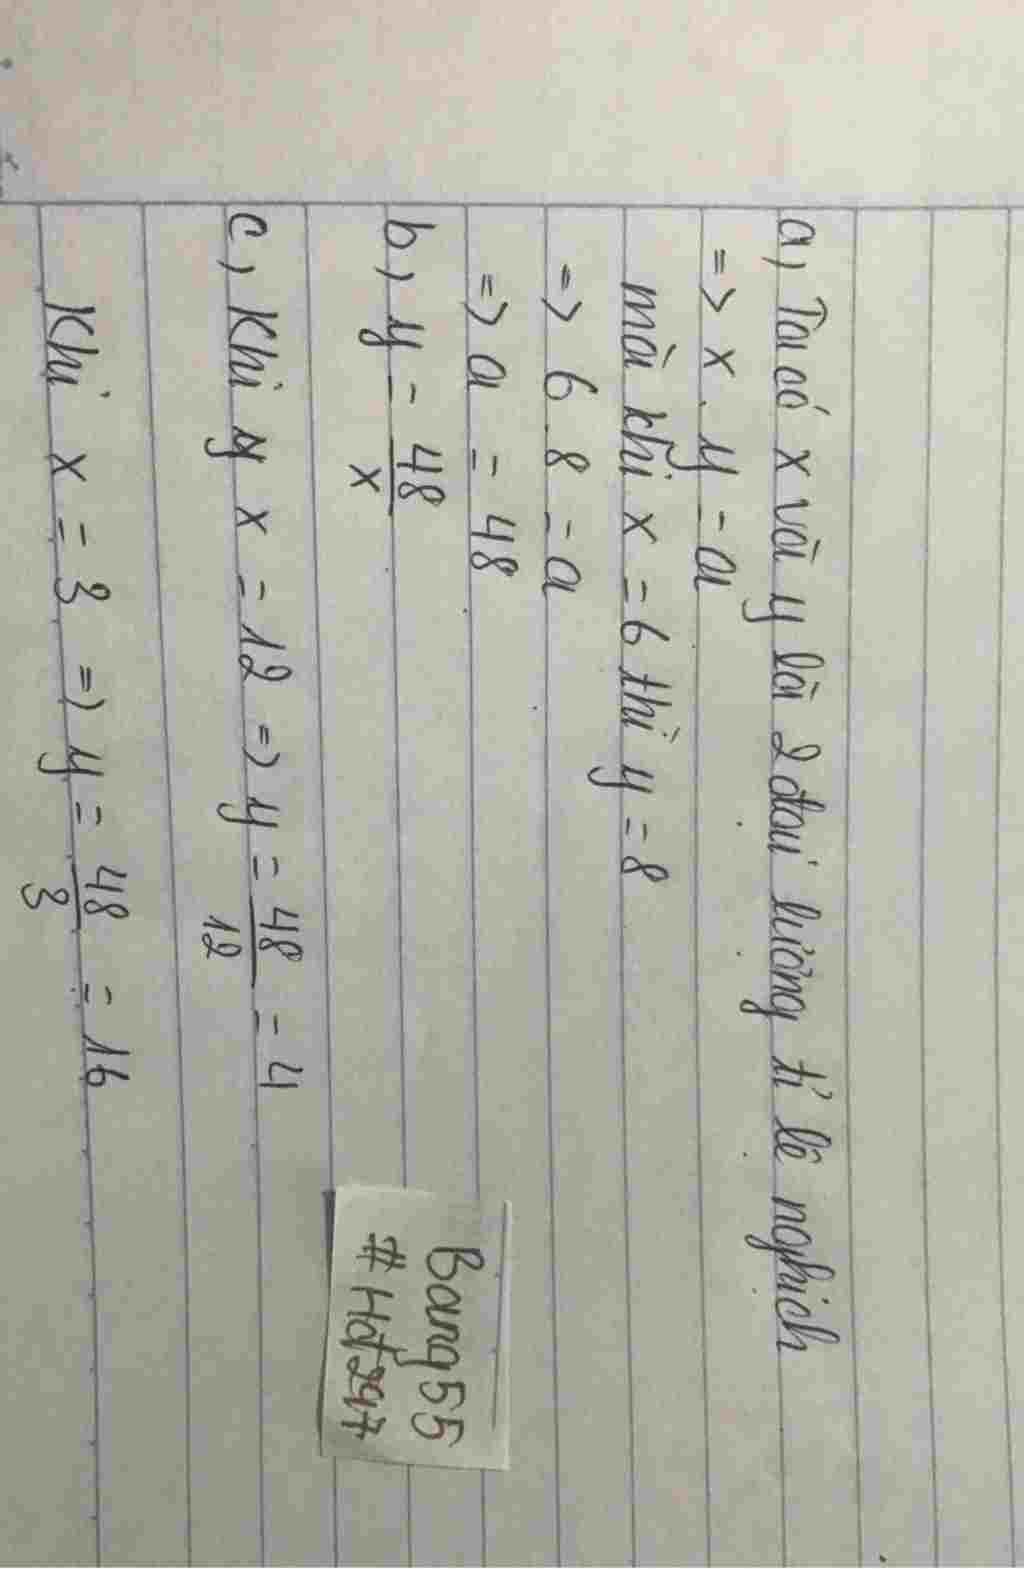 a, Ta có x và y là 2 đại lượng tỉ lệ nghịch
=> x . y = a
mà khi x = 6 thì y = 8
=> 6 . 8 = a
=> a = 48
b, y = 48/x
c, Khi x = 12 => y = 48/12 = 4
Khi x = 3 => y = 48/3 = 16
Bang55
#Hđ247